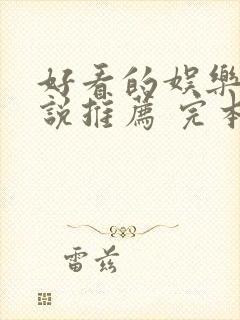 好看的娛樂
說推薦 完本
雷茲